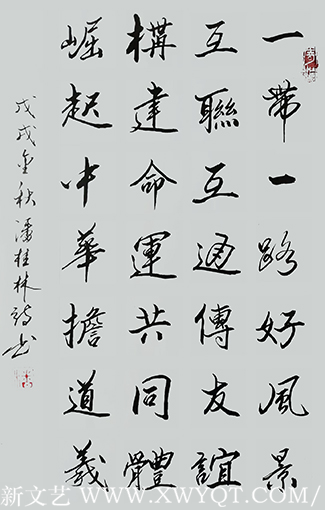 一帶一路好風景
互聯互通傳友誼
構建命運共同體
崛起中華擔道義
戊戌金秋潘桂林詩書
新文艺 www.xwyqt.com/